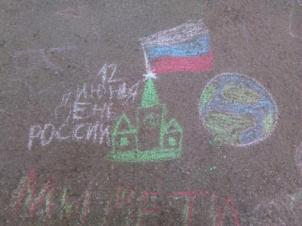 12
ИЮНЯ
ДЕНЬ
РОССИИ
МЫ ДЕТИ